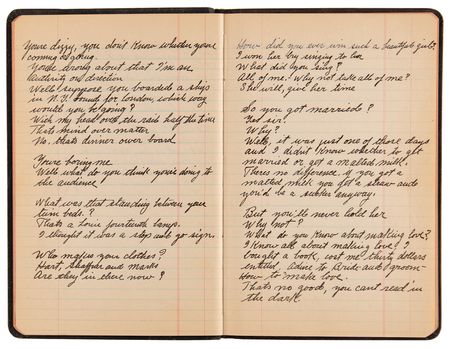 Youre dizzy, you don't know whether youre
coming or going.
Youre wrong about that I'm an
authority on direction
Well suppose you boarded a ship
in N.Y. bound for london, which way
would you be going?
With my head over the rail half the time
Thats mind over matter
No, thats dinner over board
Youre boring me
Well what do you think youre doing to
the audience
What was that standing between your
twin beds.?
Thats a Louis fourteenth lamp.
I thought it was a stop and go sign.
Who makes your clothes?
Hart, Shaffner and Marks
Are they in there now?
How did you ever win such a beautiful girl?
I won her by singing to her
What did you sing?
All of me. Why not take all of me?
She will, give her time
So you got married?
Yes sir.
Why?
Well, it was just one of those days
and I didnt know whether to get
married or get a malted milk.
Theres no difference, if you got a
malted milk you get a straw and
you'd be a sucker anyway.
But you'll never hold her
Why not?
What do you know about making love?
I know all about making love? I
bought a book, cost me thirty dollars
entitled, Advice to Bride and Groom
How to make love.
Thats no good, you cant read in
the dark.